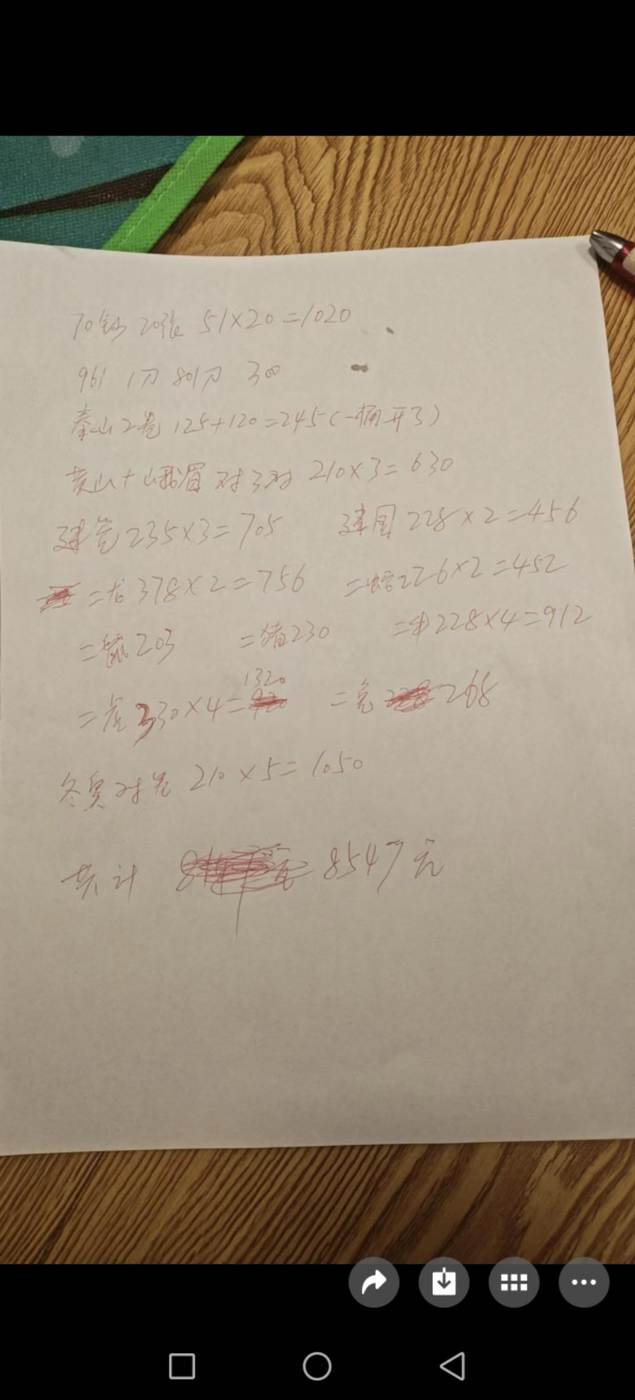 70钞 20张 51×20=1020
961 1刀 801刀 300
泰山2卷 125+120=245(一桶开了)
黄山+山峨眉 对3对 210×3=630
建党235×3=705 建国228×2=456
二龙378×2=756 二蛇226×2=452
二鼠203 二猪230 二牛228×4=912
二虎330×4=1320 二兔268
冬奥对卷 210×5=1050
共计 8547元